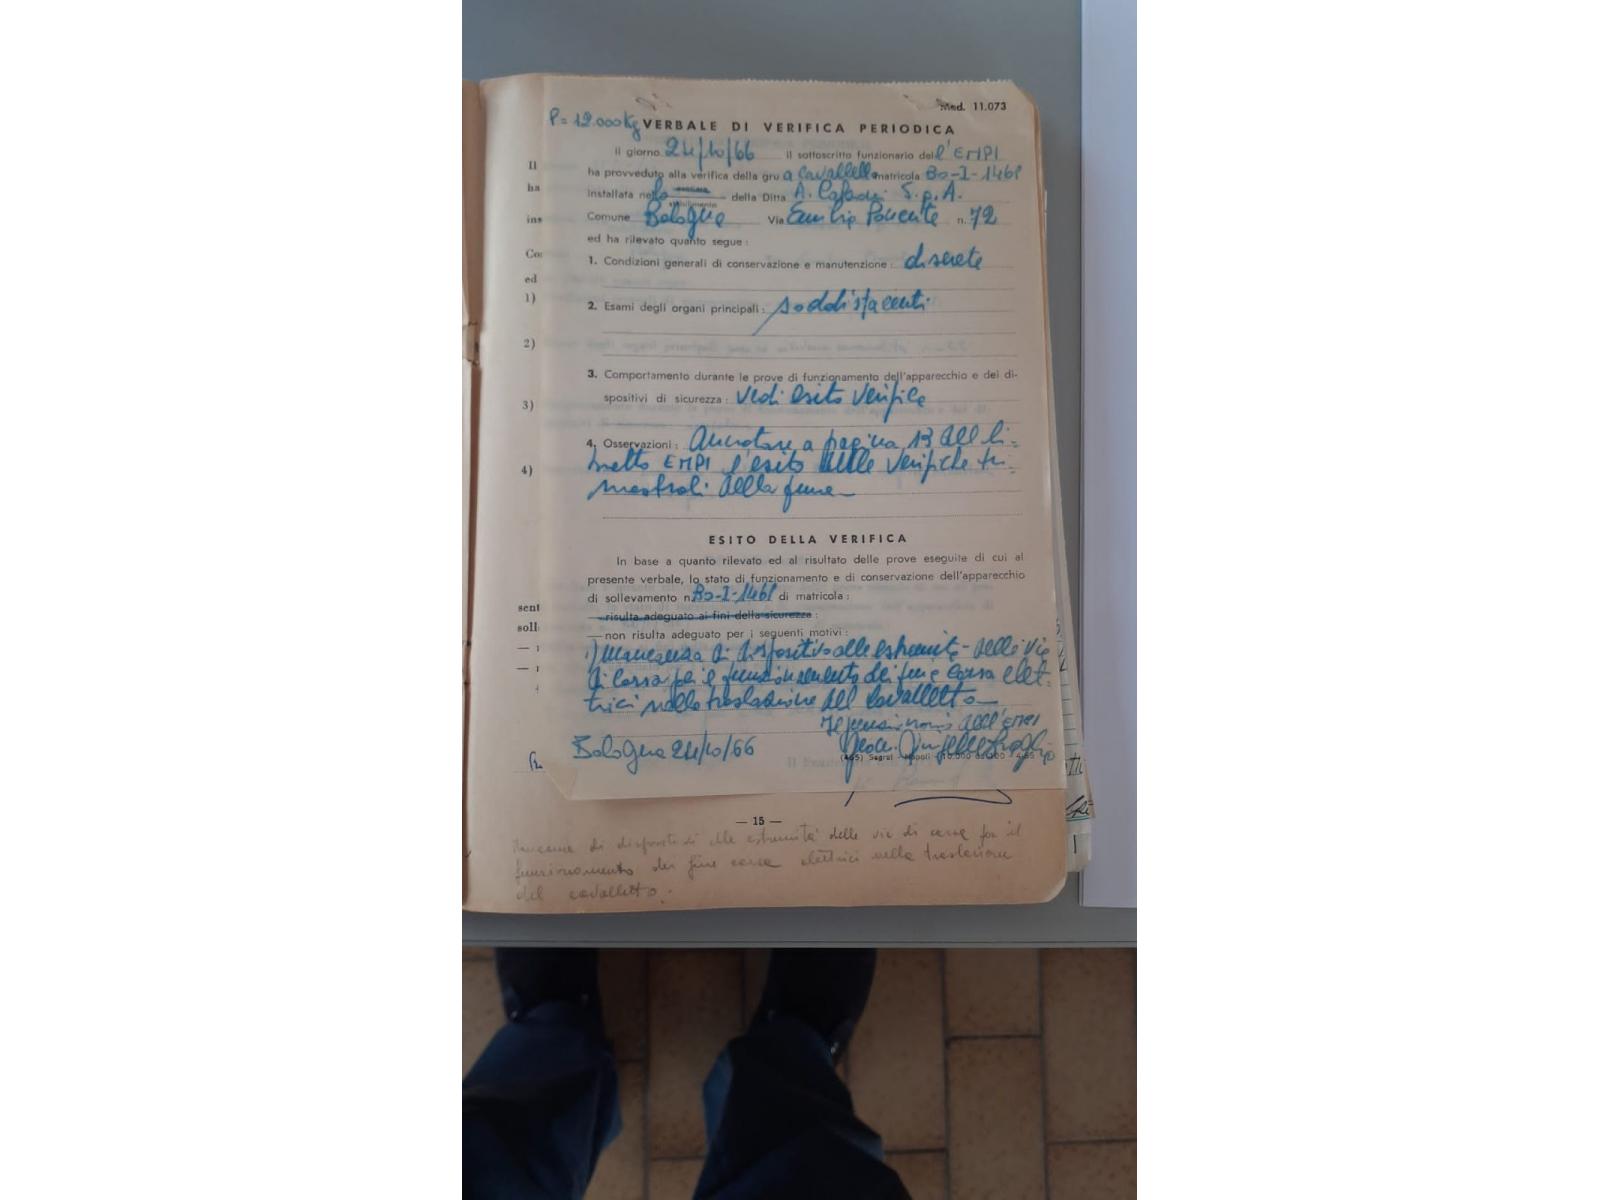 Mod. 11.073
P = 12.000 Kg VERBALE DI VERIFICA PERIODICA
Il giorno 24/10/66 il sottoscritto funzionario del l'EMPI
ha provveduto alla verifica della gru a cavalletto matricola Bo-I-1461
installata nello stabilimento della Ditta A. S.p.A.
Comune Bologna Via Emilia Ponente n. 72
ed ha rilevato quanto segue :
1. Condizioni generali di conservazione e manutenzione : discrete
2. Esami degli organi principali : soddisfacenti
3. Comportamento durante le prove di funzionamento dell'apparecchio e dei di-
spositivi di sicurezza : vedi esito verifica
4. Osservazioni : Annotare a pagina 13 del li-
bretto EMPI l'esito delle verifiche tri-
mestrali della fune
ESITO DELLA VERIFICA
In base a quanto rilevato ed al risultato delle prove eseguite di cui al
presente verbale, lo stato di funzionamento e di conservazione dell'apparecchio
di sollevamento n. Bo-I-1461 di matricola :
— risulta adeguato ai fini della sicurezza :
— non risulta adeguato per i seguenti motivi :
1) mancanza di dispositivo alle estremità delle vie
di corsa per il funzionamento dei fine corsa elet-
trici nella traslazione del cavalletto
Il funzionario dell'EMPI
Bologna 24/10/66
Il
ha
ins
ed
1)
2)
3)
4)
sent
soll
— 15 —
Mancanza di dispositivi alle estremità delle vie di corsa per il
funzionamento dei fine corsa elettrici nella traslazione
del cavalletto.